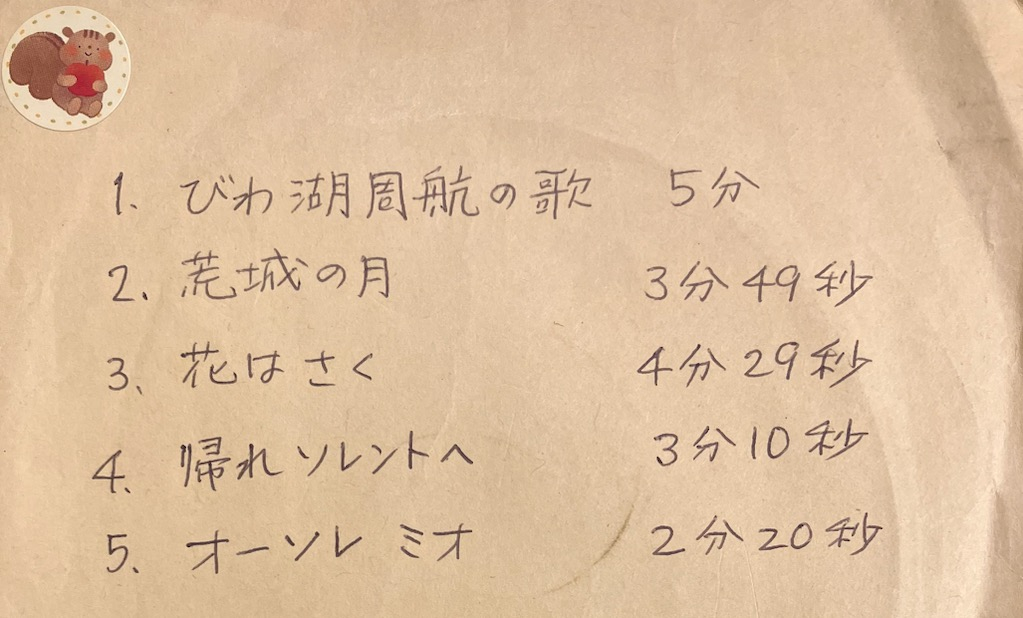 1. びわ湖周航の歌 5分
2. 荒城の月 3分49秒
3. 花はさく 4分29秒
4. 帰れソレントへ 3分10秒
5. オーソレ ミオ 2分20秒